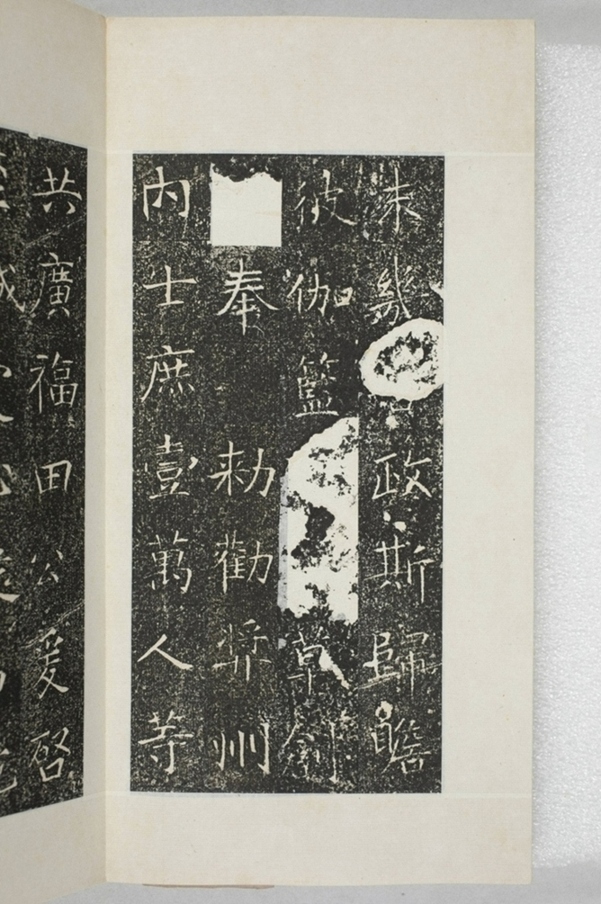 未幾政斯歸瞻
彼伽籃草創
奉勑勸奬州
內士庶壹萬人等
共廣福田公爰啓